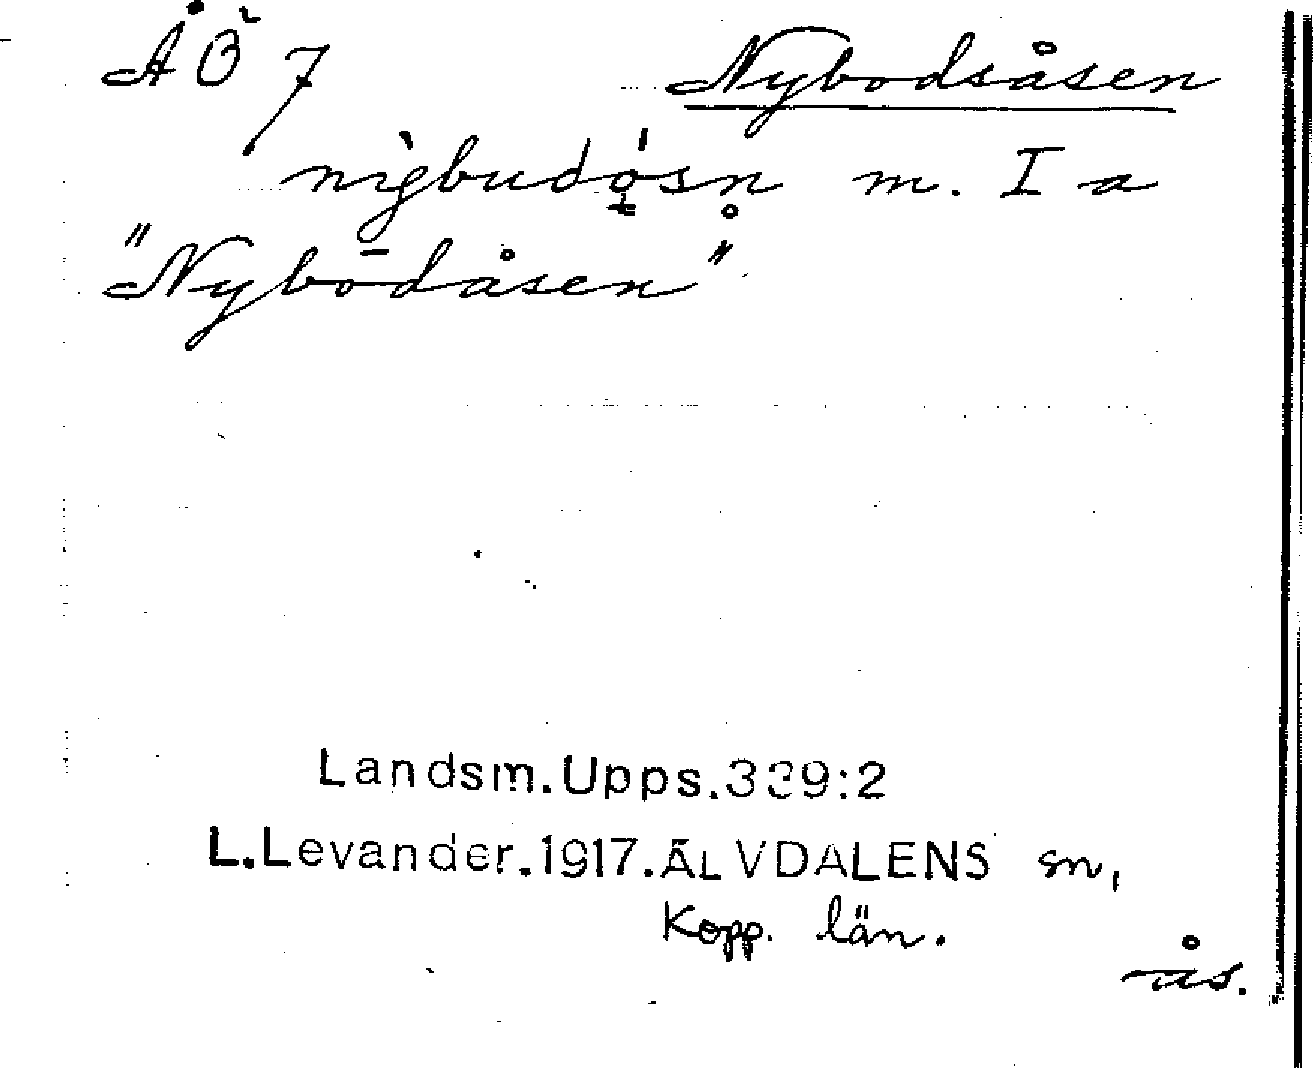 ÅÖ 7 Nybodsåsen
nìgbudǫ́sn̥ m. I a
"Nybōdåsen"
Landsm.Upps.339:2
L.Levander.1917.ÄLVDALENS sn,
Kopp. län.
ås.